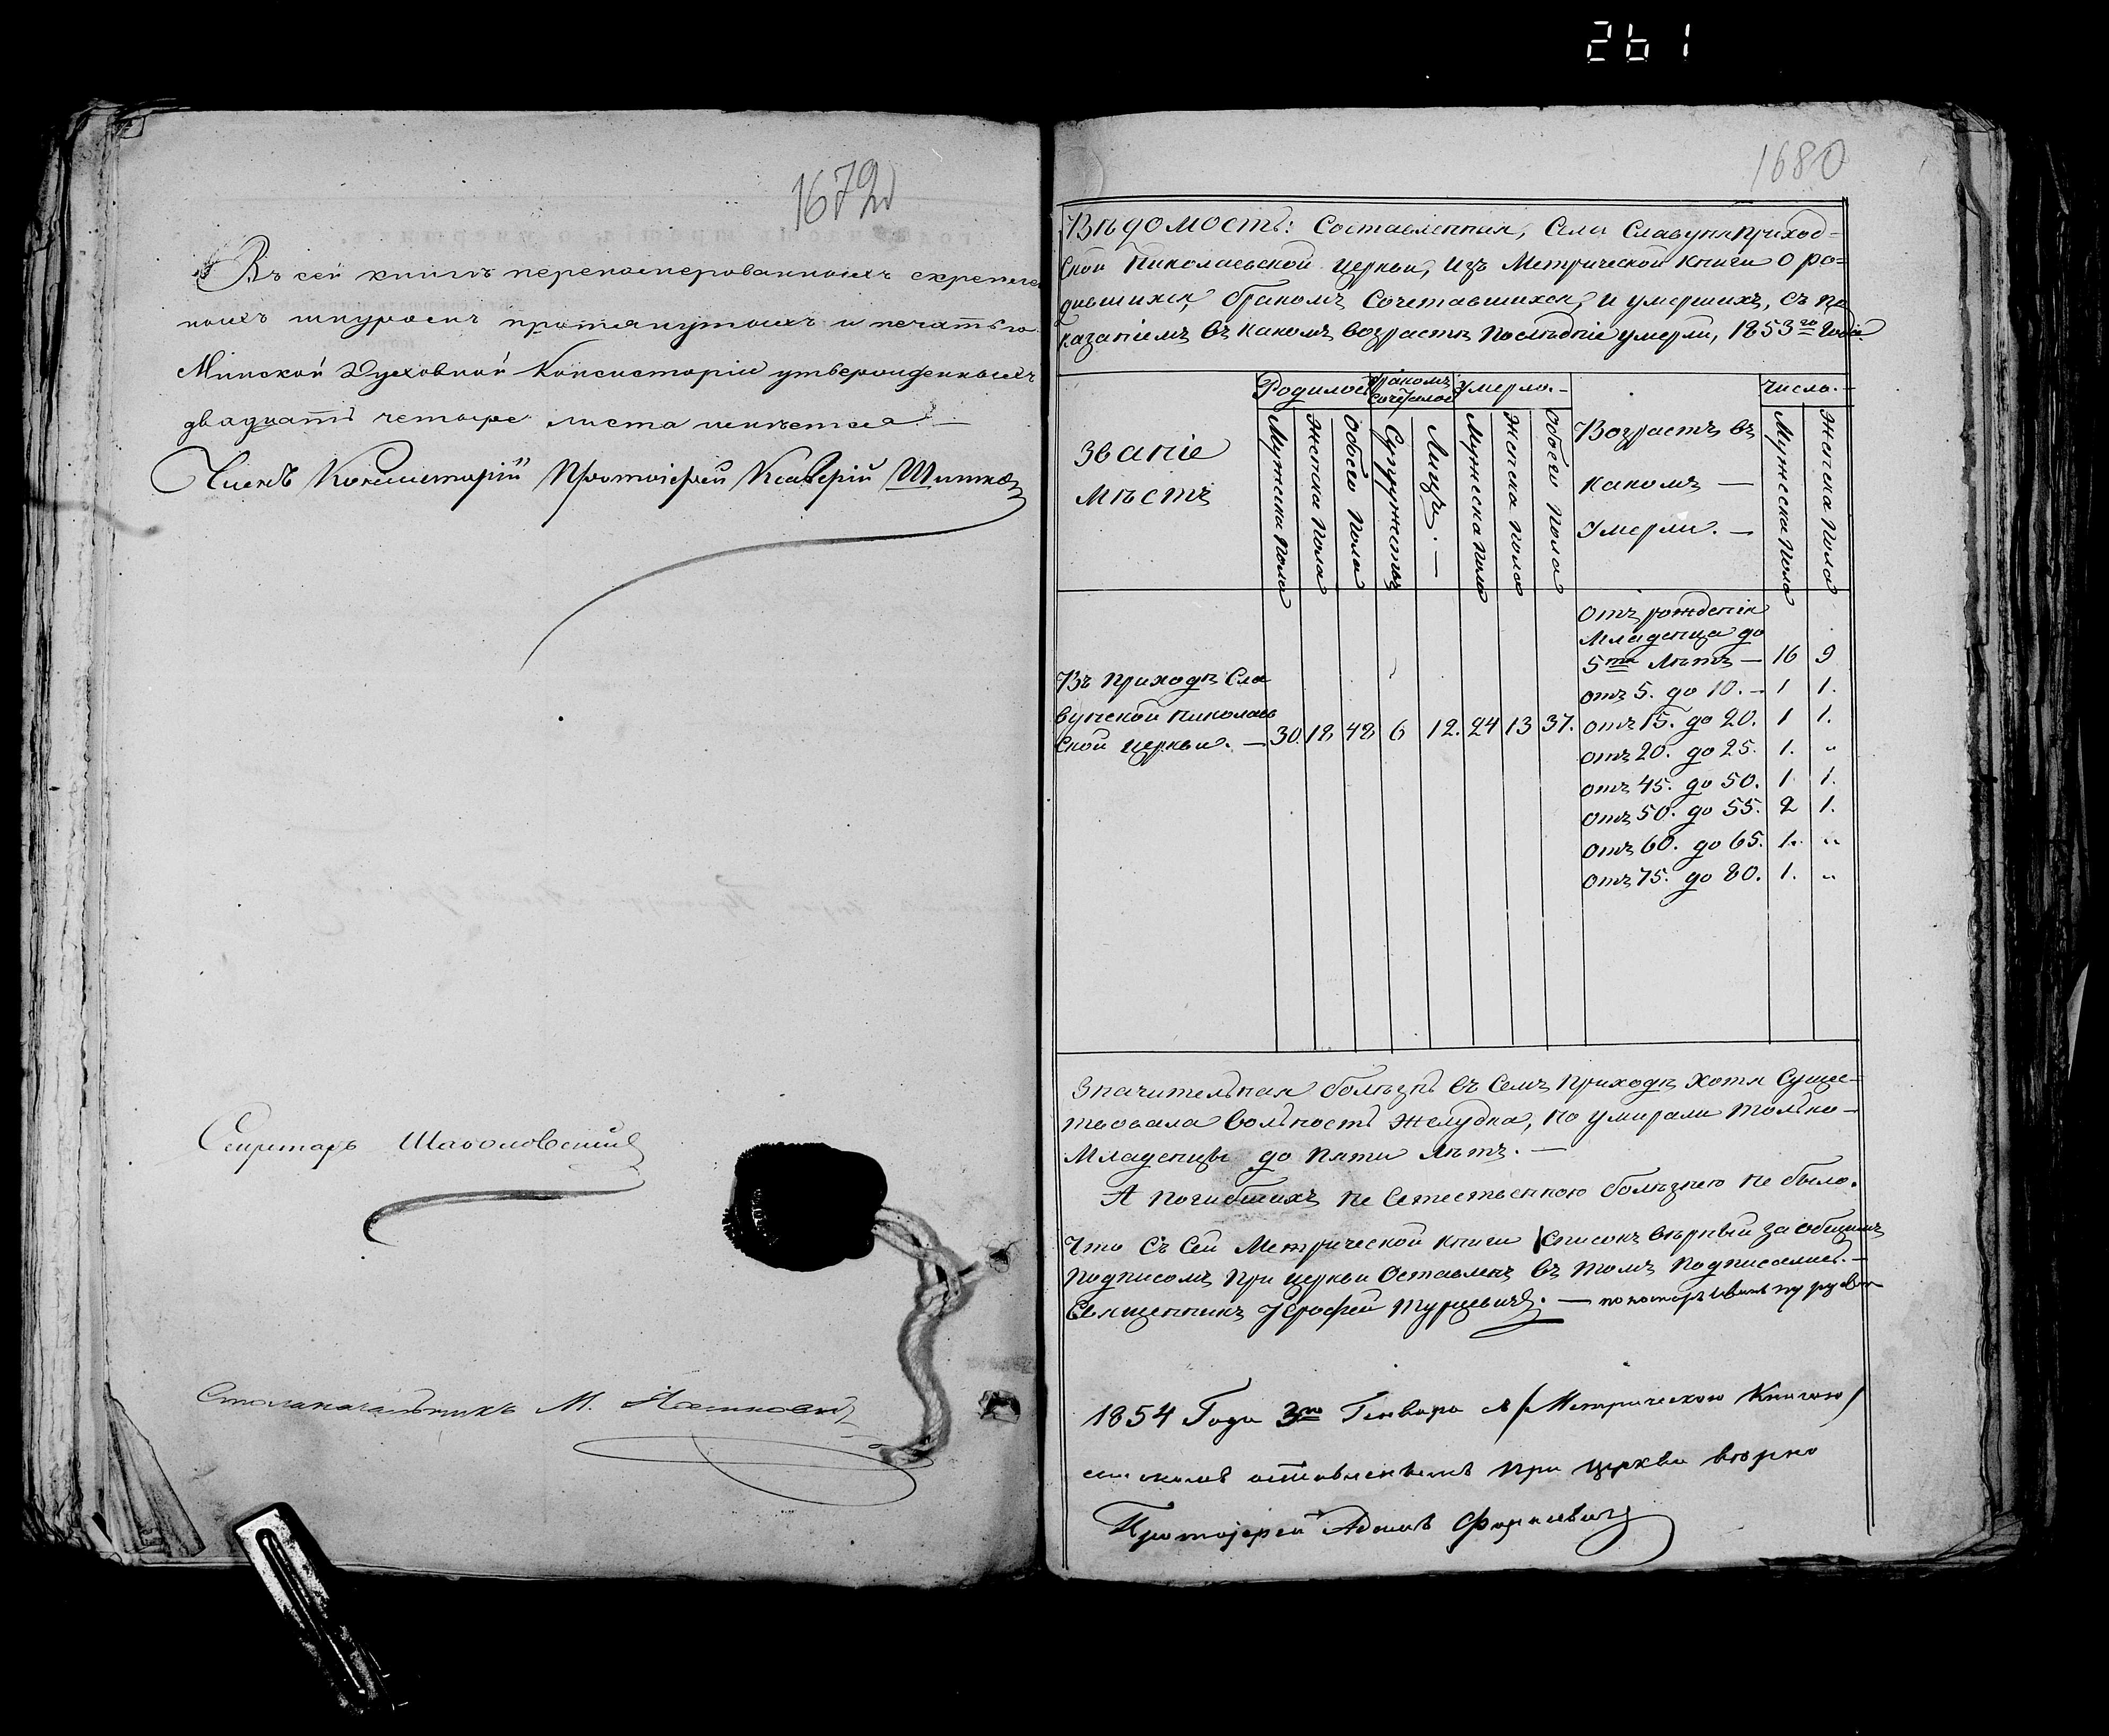 261
1679
Въ сей книгѣ перенумерованныхъ скрепле
ныхъ шнуромъ протянутыхъ и печатью
Минской Духовной Консисторіи утвержденныхъ
двадцать четыре листа имѣется. —
Членъ Консисторіи Протоіерей Ксаверій
Секретарь
Столоначальникъ М.
1680
Вѣдомость: Составленная, Села Славуня приход-
ской Николаевской церкви, изъ Метрической книги о ро-
дившихся, бракомъ сочетавшихся, и умершихъ, съ по
казаніемъ въ какомъ возрастѣ послѣдніе умерли, 1853го Года.
Званіе мѣстъ
Родилось
Мужеска пола
Женска пола
Обоего пола
Бракомъ сочеталось
Супружествъ
Лицъ. —
Умерло. —
Мужеска пола
Женска пола
Обоего пола
Возрастъ въ
какомъ —
Умерли. —
Число. —
Мужеска пола
Женска пола
Въ приходѣ Сла
вунской Николаев
ской церкви. — 30. 18 48 6 12. 24 13 37.
Отъ рожденія
Младенца до
5ти Лѣтъ — 16 9
отъ 5. до 10. — 1 1.
отъ 15. до 20. 1 1.
отъ 20. до 25. 1. "
отъ 45. до 50. 1. 1.
отъ 50. до 55. 2 1.
отъ 60. до 65. 1. "
отъ 75. до 80. 1. "
Значительная болѣзнь въ семъ приходѣ хотя суще-
твовала больность желудка, но умирали только —
Младенцы до пяти лѣтъ. —
А погибшихъ не естественною болѣзнею не было.
Что съ сей Метрической книги списокъ вѣрный за общимъ
подписомъ при церкви оставленъ въ томъ подписались. —
Священникъ Іерофей Турцевичъ. — пономарь Иванъ
1854 Года 3го Генваря съ Метрическою Книгою
оставленною при церкви вѣрно
Протоіерей Адамъ